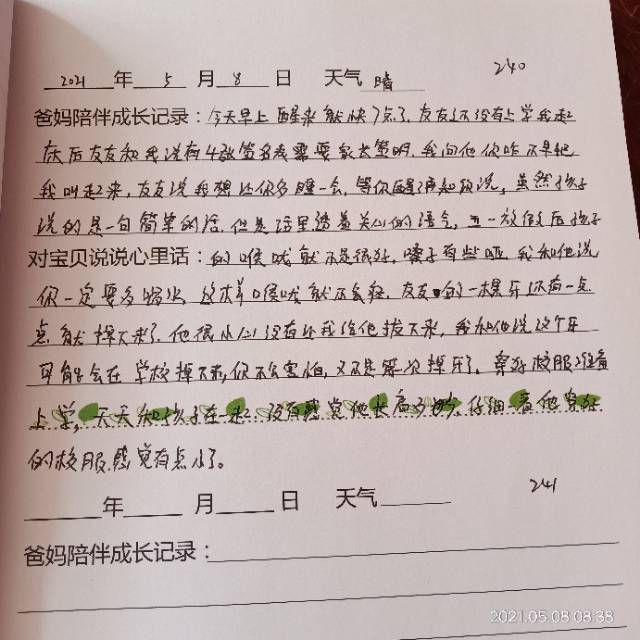 240
2021 年 5 月 8 日 天气 晴
爸妈陪伴成长记录：今天早上醒来就快7点了，友友还没有上学我起
床后友友和我说有4张签名表需要家长签明，我问他你咋不早把
我叫起来，友友说我想让你多睡一会，等你醒了再和你说，虽然孩子
说的是一句简单的话，但是话里透着关心的语气，五一放假后孩子
对宝贝说说心里话：的喉咙就不是很好，嗓子有些哑，我和他说
你一定要多喝水，这样喉咙就不会轻，友友的一棵牙还有一点
点就掉下来了，他很小心没有让我给他拔下来，我和他说这个牙
可能会在学校掉下来，你不会害怕，又不是第一次掉牙了。穿好校服准备
上学，天天和孩子在一起没有感觉他长高多少，仔细一看他身好
的校服感觉有点小了。
241
年 月 日 天气
爸妈陪伴成长记录：
2021.05.08 08:38